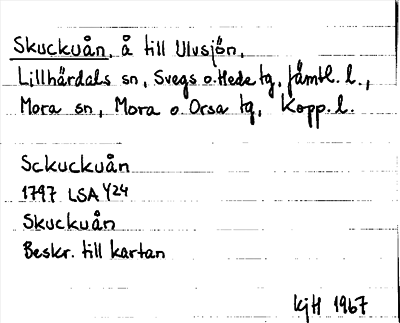 Skuckuån, å till Ulvsjön,
Lillhärdals sn, Svegs o. Hede tg, Jämtl. l.,
Mora sn, Mora o. Orsa tg, Kopp. l.
Sckuckuån
1797 LSA Y24
Skuckuån
Beskr. till kartan
KjH 1967